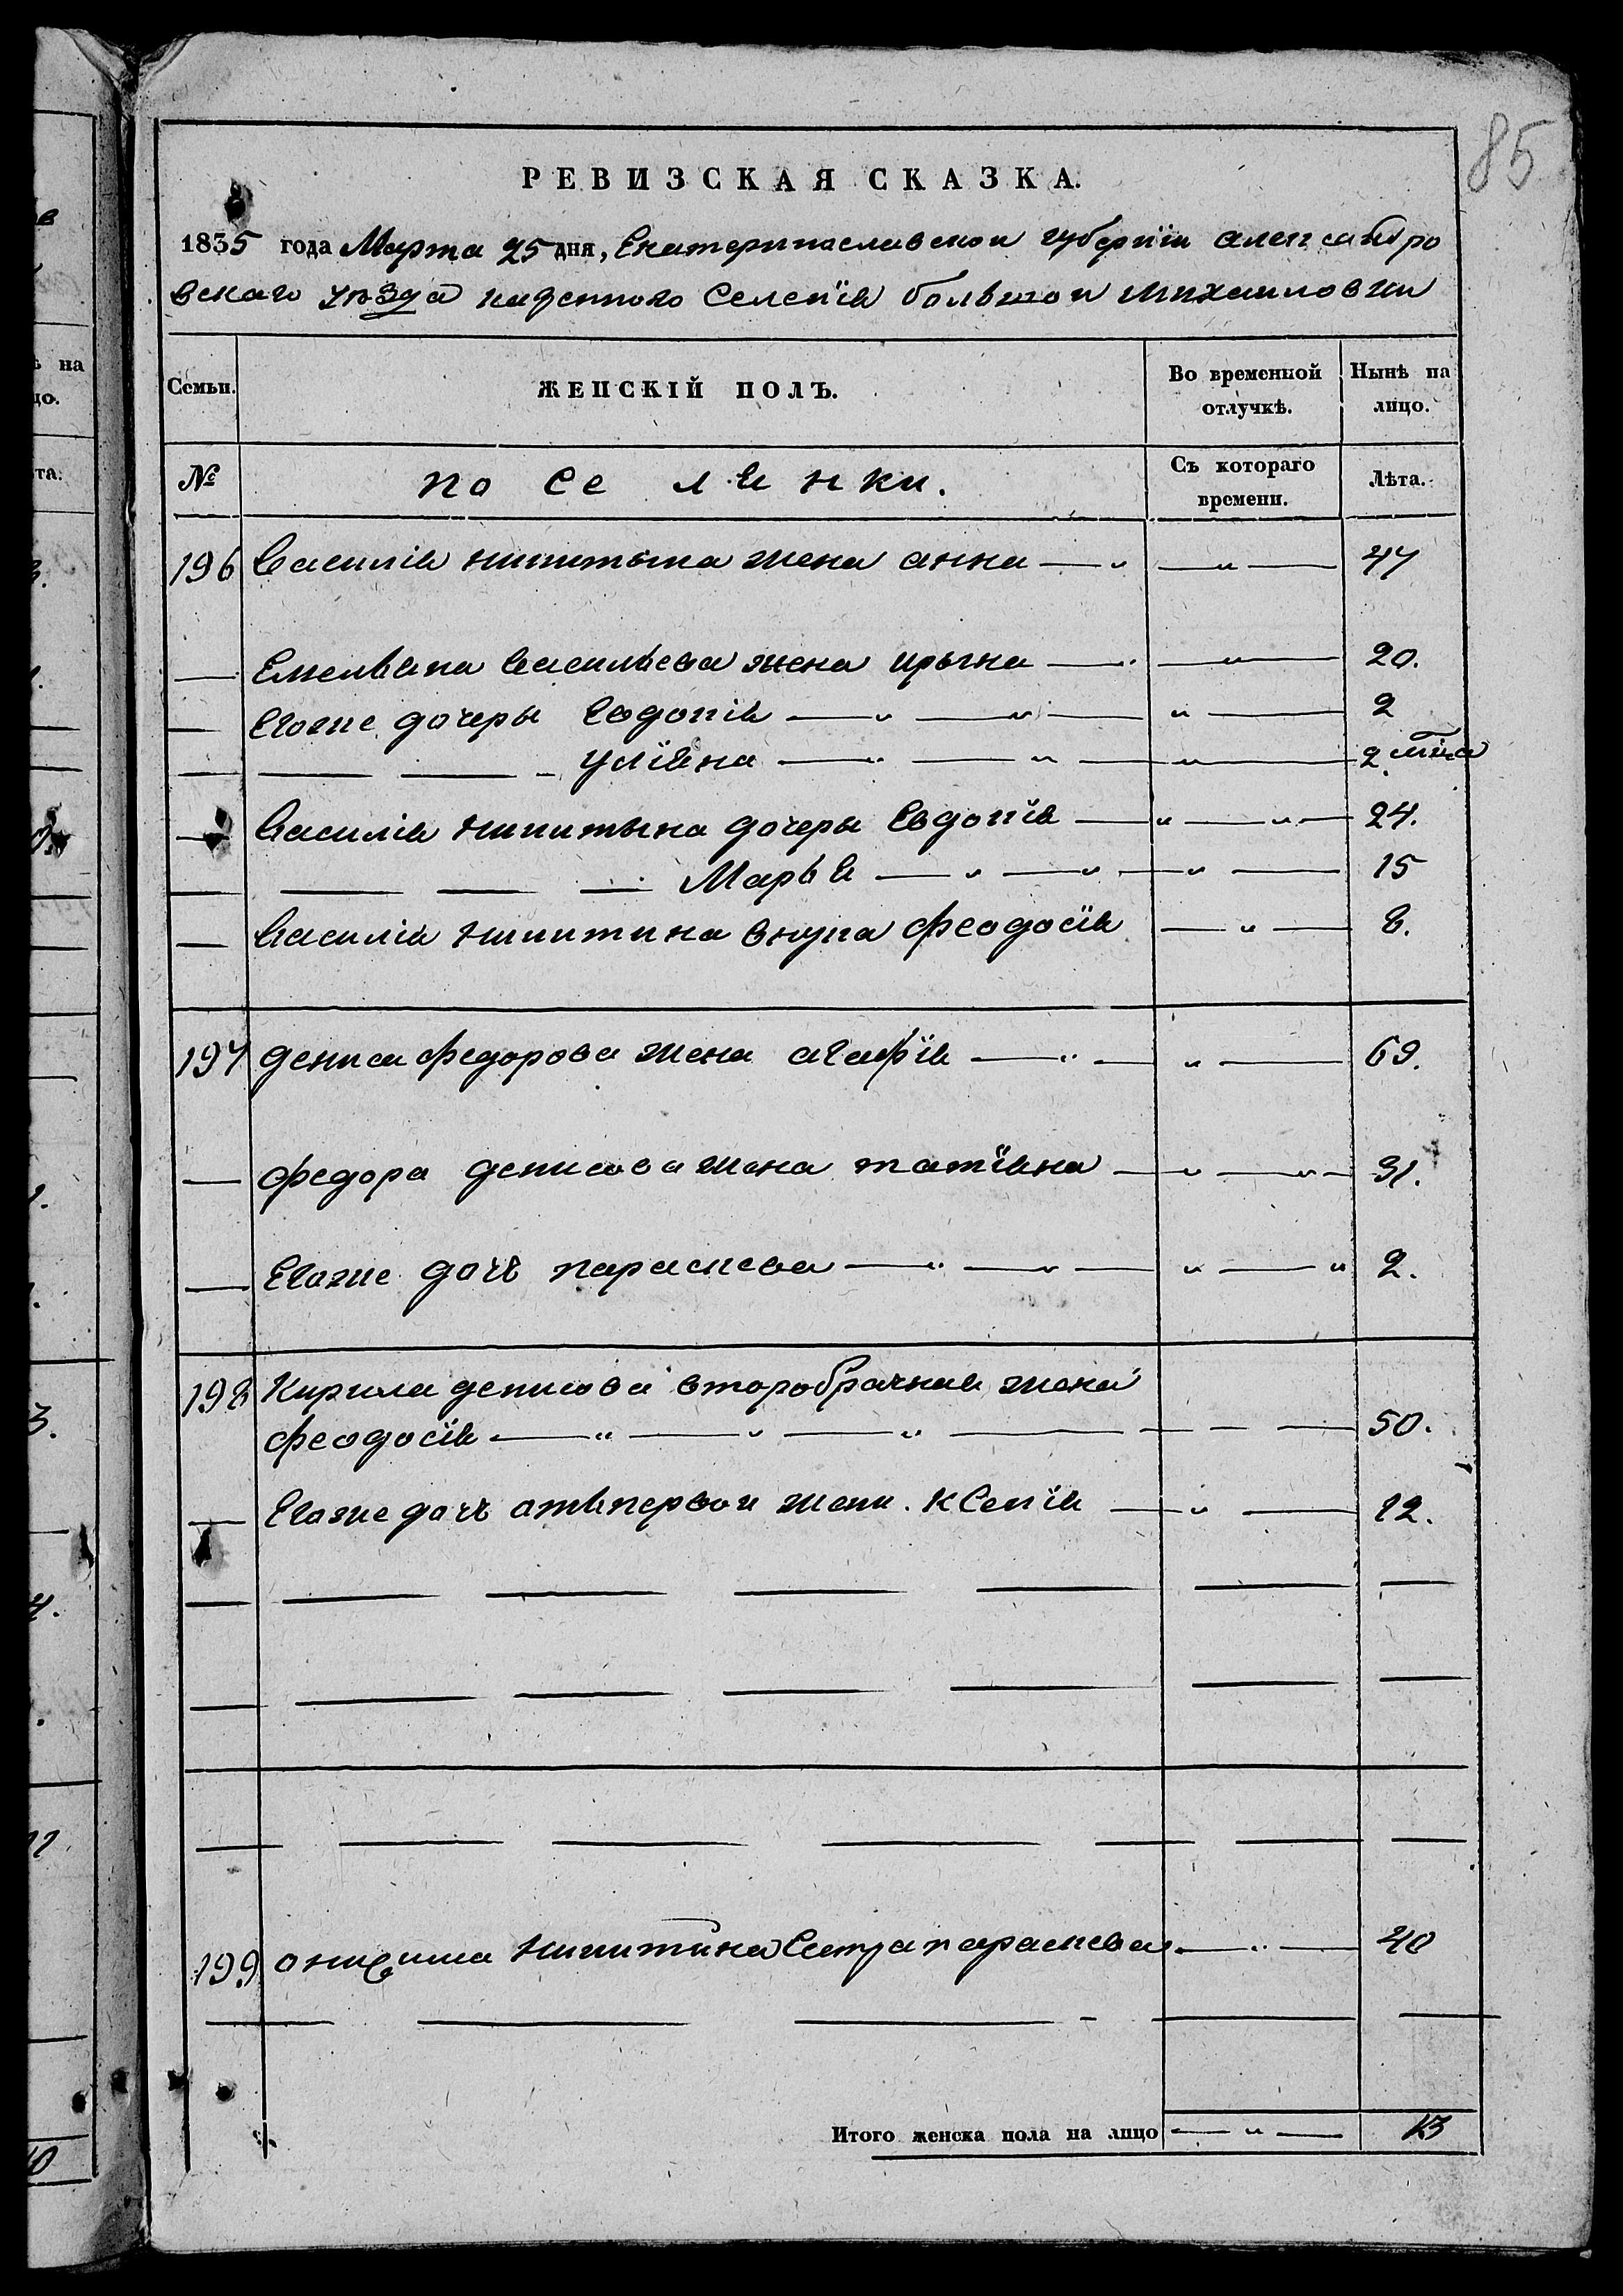 85
РЕВИЗСКАЯ СКАЗКА.
1835 года Марта 25 дня, Екатеринаславской губернїи александро
вскаго уѣзда казенного Селенїя большой михаиловки
Семьи. ЖЕНСКІЙ ПОЛЪ. Во временной отлучкѣ. Нынѣ на лицо.
№ поселянки. Съ котораго времени. Лѣта.
196 Василія никитына жена анна — „ — „ — 47
— Емельяна васильева жена ирына — „ — „ — 20.
— Егоже дочеры Евдокія — „ — „ — „ — 2
— — — улїяна — „ — „ — „ — 2 мѣца
— Василія никитына дочеры Евдокїя — „ — „ — 24.
— — — — Марья — „ — „ — „ — 15
— Василія никитина внука феодосїя — „ — 8.
197 дениса федорова жена агафїя — „ — „ — 69.
— федора денисова жена татїяна — „ — „ — 31.
— Егоже дочь параскева — „ — „ — „ — „ 2.
198 Кирила денисова второбрачная жена
феодосїя — „ — „ — „ — — — 50.
— Егоже дочь отъпервой жены. Ксенїя — „ — 12.
199 онисима никитина Сестра параскева — „ — 40
Итого женска пола на лицо — „ — 13